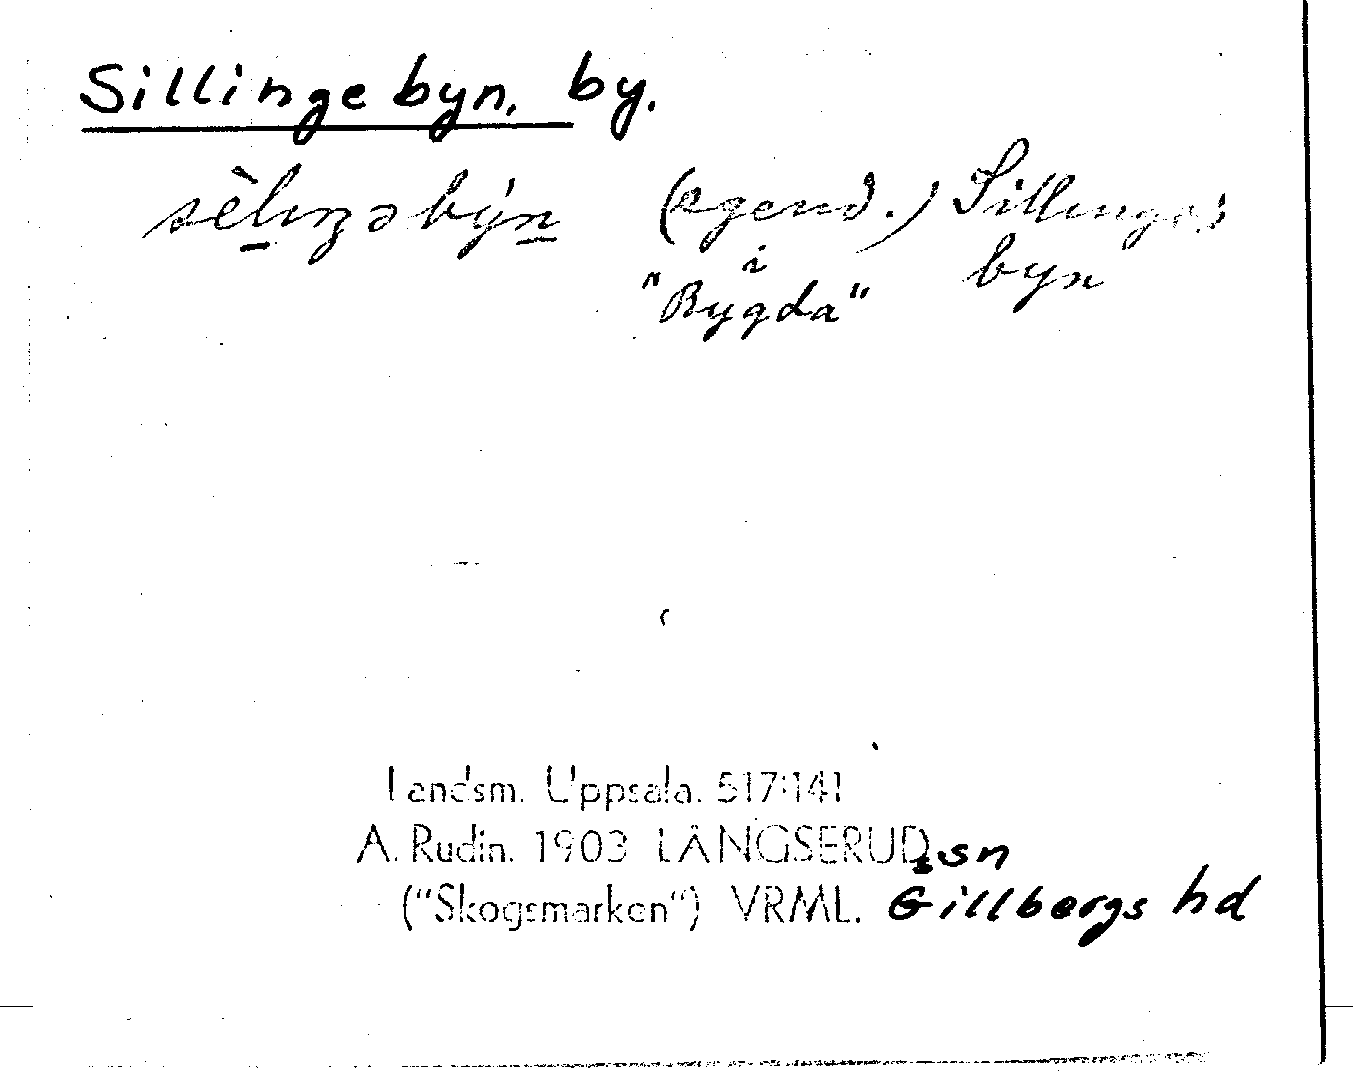 Sillingebyn, by.
sèlıŋəbýn (egend.) Sillinge:
i byn
"Bygda"
Landsm. Uppsala. 517:141
A. Rudin. 1903 LÅNGSERUD sn
("Skogsmarken") VRML. Gillbergs hd